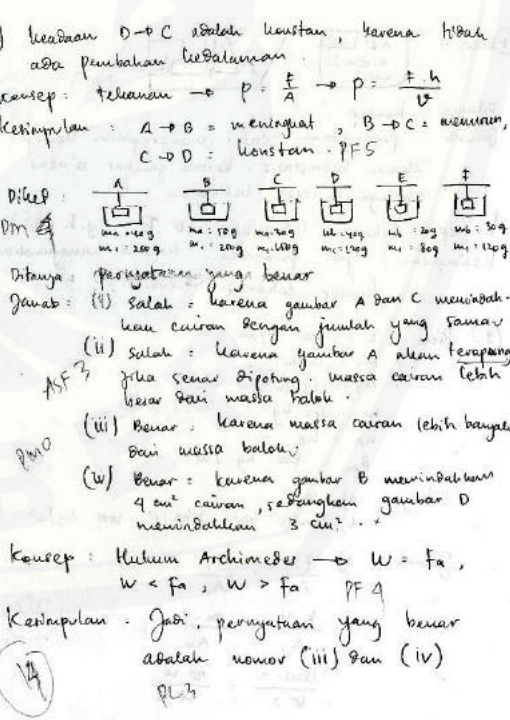 ) keadaan D → C adalah konstan, karena tidak
ada perubahan kedalaman.
konsep: tekanan → P = F/A → P = F.h/V
Kesimpulan: A → B = meningkat, B → C = menurun,
C → D = konstan. PF5
Diket: A B C D E F
DM
mb: 40g mb: 50g mb: 30g mb: 40g mb: 20g mb: 30g
m1: 200g m1: 200g m1: 120g m1: 80g m1: 120g
Ditanya: pernyataan yang benar
Jawab: (i) Salah = karena gambar A dan C memindah-
kan cairan dengan jumlah yang sama.
(ii) Salah = karena gambar A akan terapung
jika senar dipotong. massa cairan lebih
besar dari massa balok.
ASF 3
(iii) Benar: karena massa cairan lebih banyak
dari massa balok.
PM0
(iv) Benar = karena gambar B memindahkan
4 cm² cairan, sedangkan gambar D
memindahkan 3 cm².
Konsep: Hukum Archimedes → W = Fa,
W < Fa, W > Fa PF 4
Kesimpulan. Jadi, pernyataan yang benar
adalah nomor (iii) dan (iv)
14
PL3